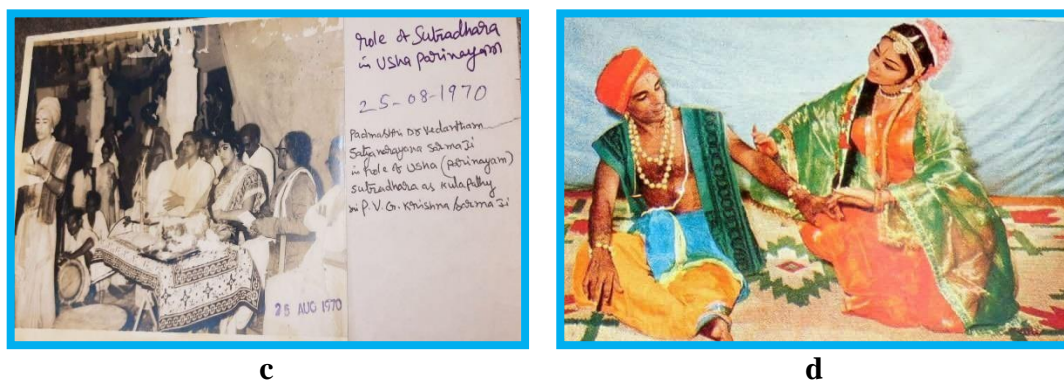 role of Sutradhara
in Usha parinayam
25-08-1970
Padmashri Dr Vedantham
Satyanarayana Sarma Ji
in role of Usha (parinayam)
sutradhara as kulapathy
sri P.V.G. Krishna Sarma Ji
25 AUG 1970
c
d